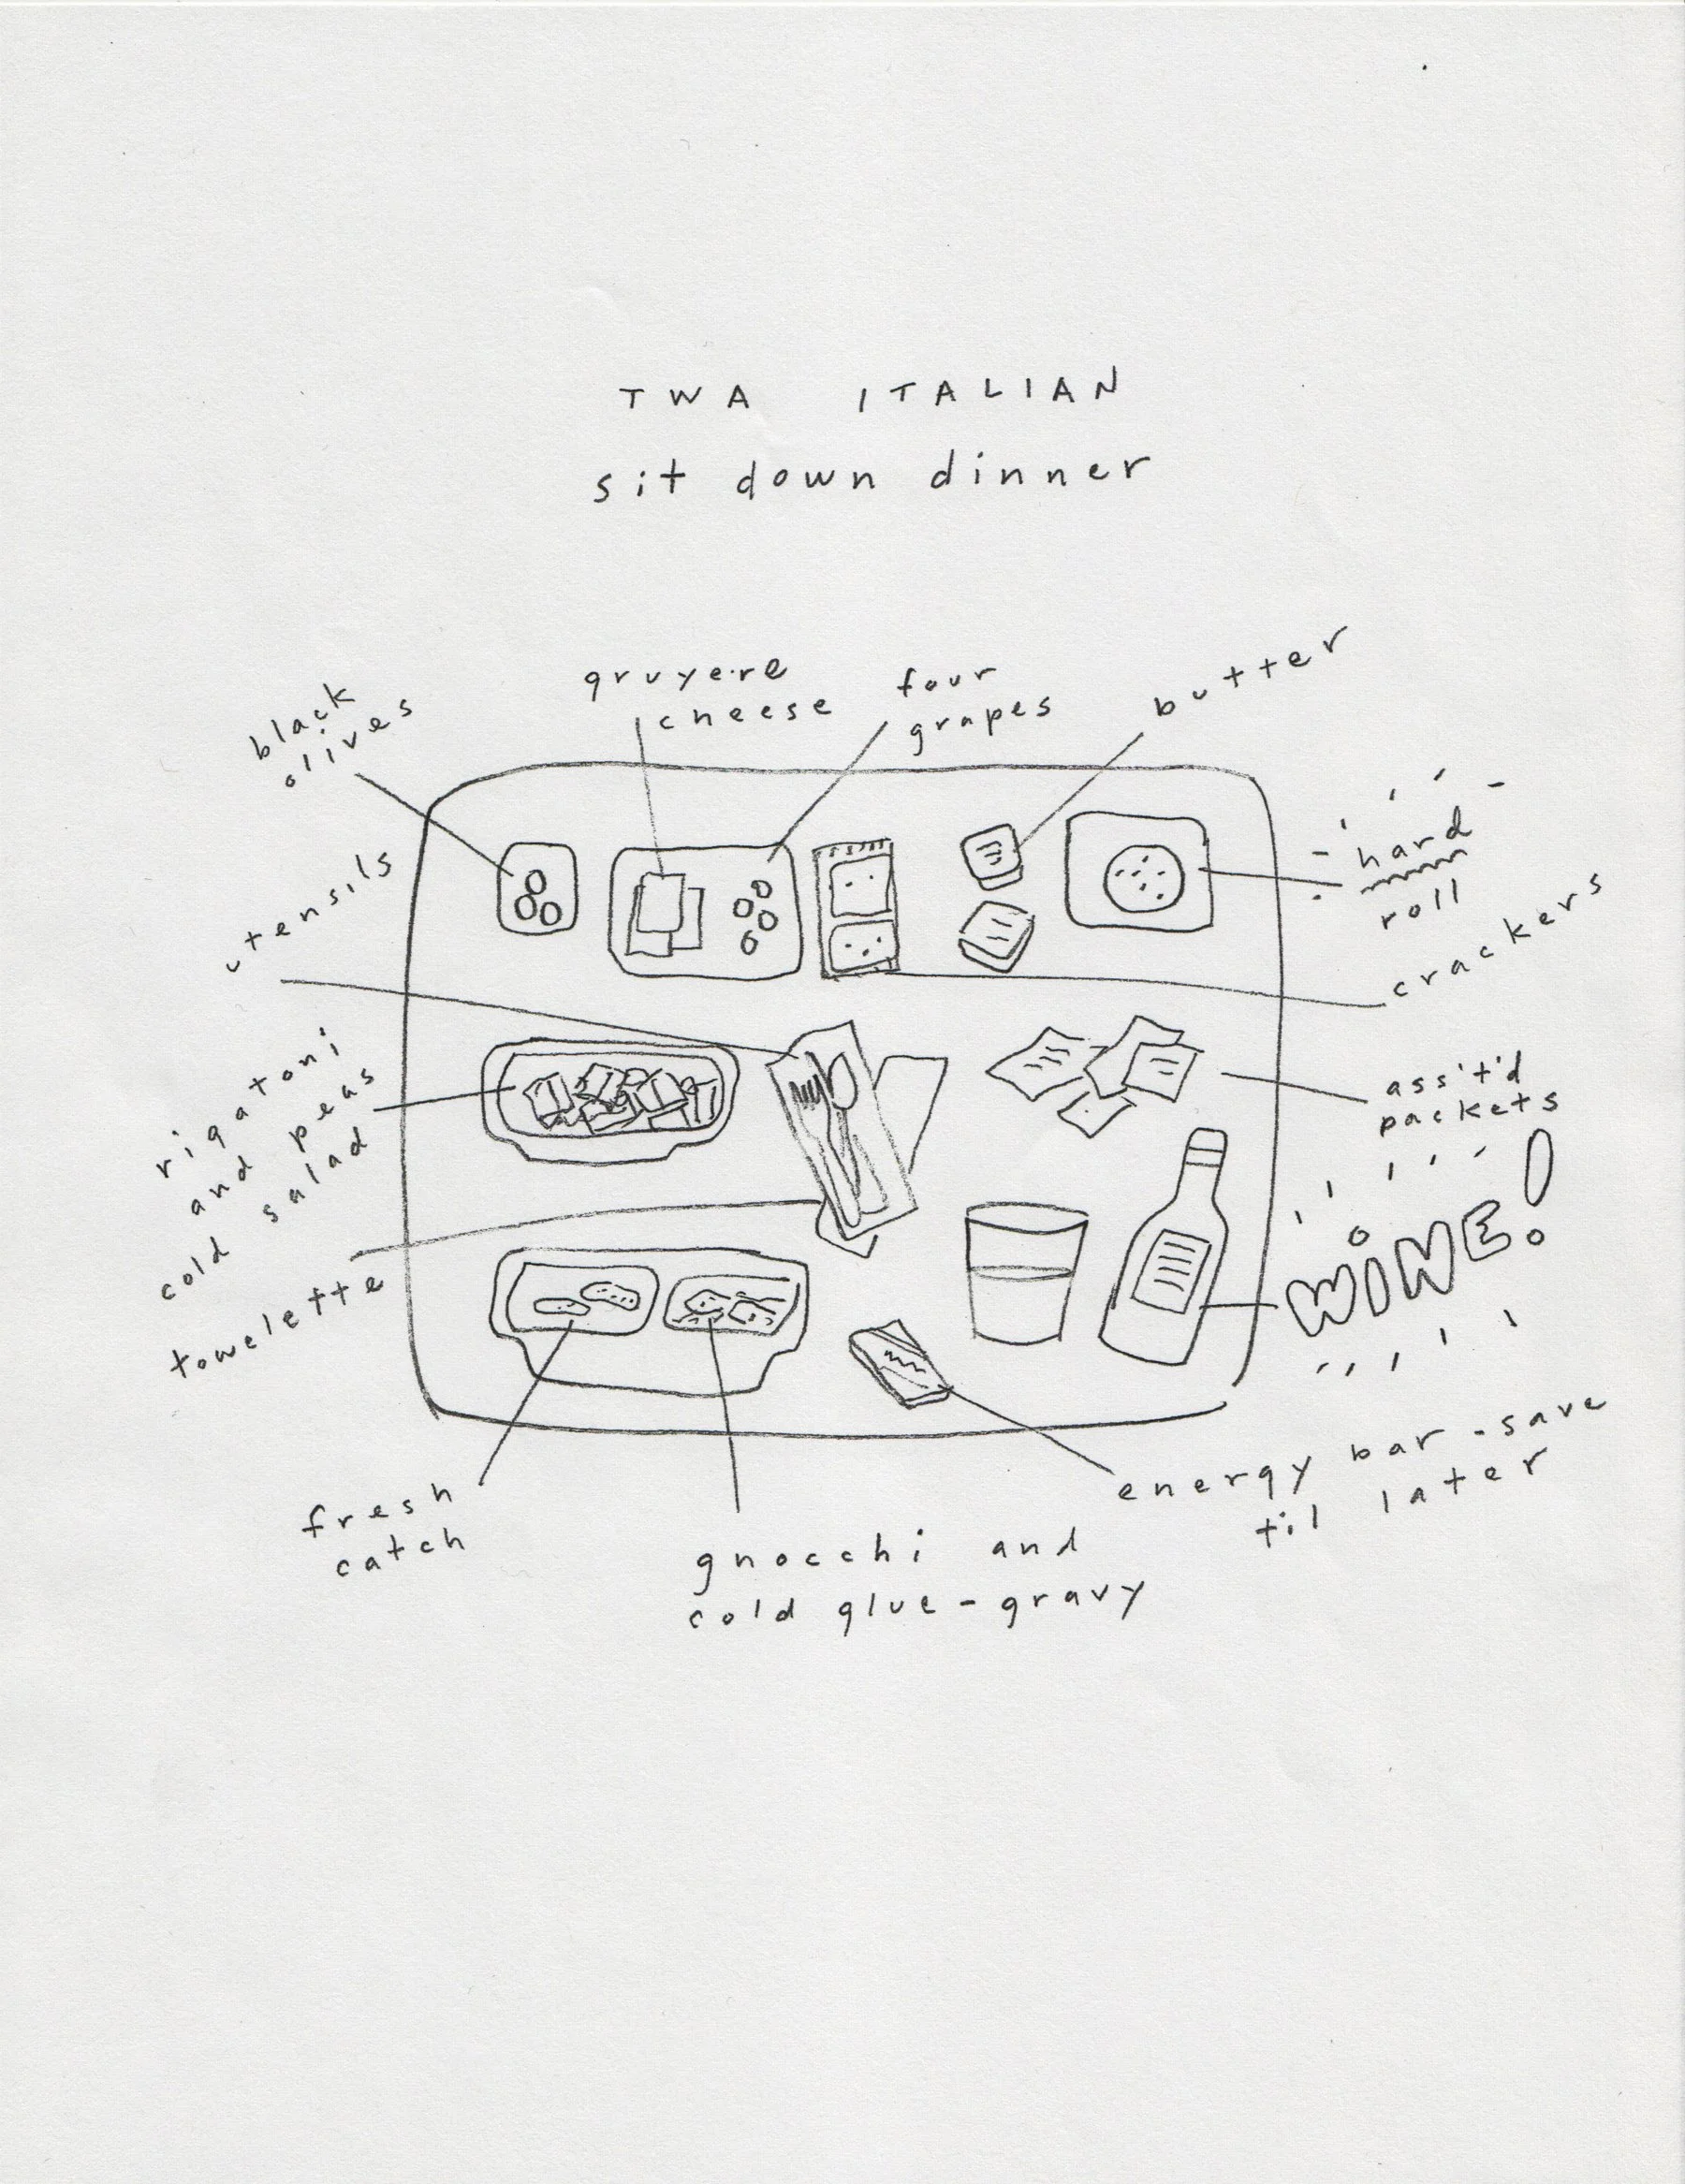 TWA ITALIAN
sit down dinner
black
olives
gruyere
cheese
four
grapes
butter
hard
roll
crackers
utensils
rigatoni
and peas
cold salad
ass't'd
packets
WINE!
towelette
fresh
catch
gnocchi and
cold glue-gravy
energy bar - save
til later